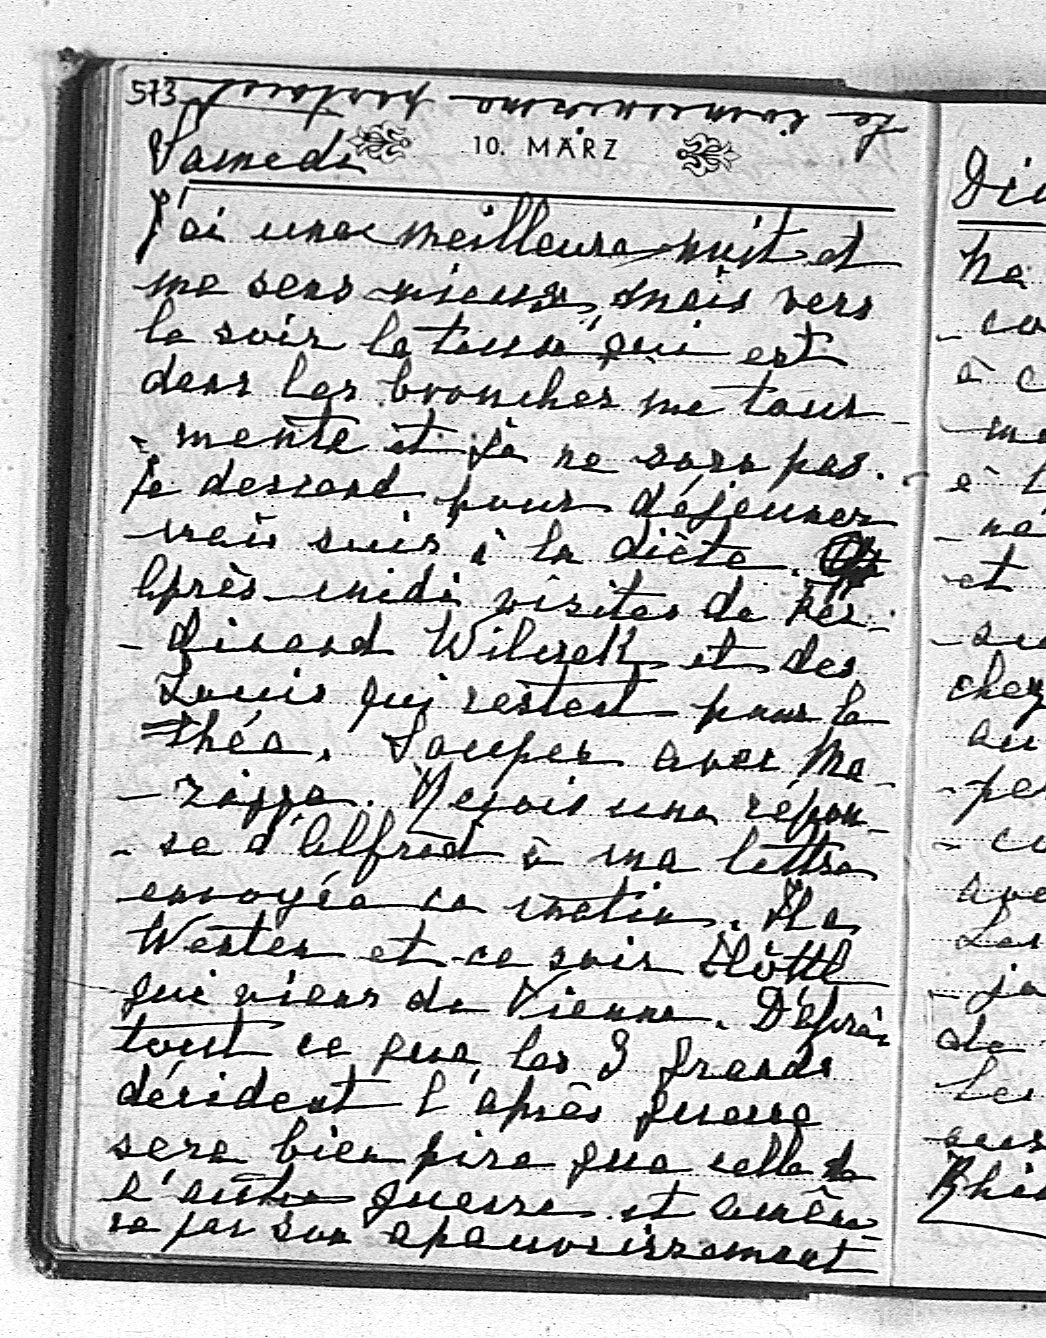 573
le communisme partout
10. MÄRZ
Samedi
J'ai une meilleure nuit et
me sens mieux, mais vers
le soir la toux qui est
dans les bronches me tour-
- mente et je ne sors pas.
Je descend pour déjeuner
mais suis à la diète.
Après-midi visites de Fer-
- dinand Wilczek et des
Louis qui restent pour le
théa. Souper avec Ma-
- zippa. Reçois une répon-
- se d'Alfred à ma lettre
envoyée ce matin. Il a
Westen et ce soir Höttl
qui viens de Vienne. D'après
tout ce que les 3 grands
décident l'après guerre
sera bien pire que celle de
l'autre guerre et amène-
ra par son apauvrissement
Di
ne
- co
à c
- me
à l
- né
et
- su
chez
au
- pe
- co
ave
Les
- ja
de
Les
sur
Rhin